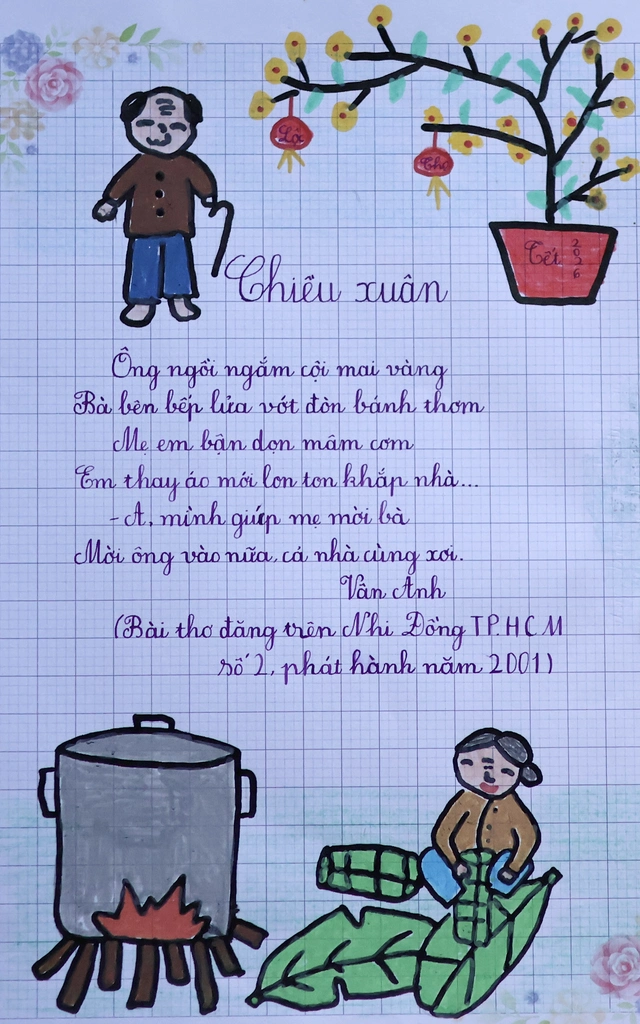 Lộc
Thọ
Tết 2026
Chiều xuân
Ông ngồi ngắm cội mai vàng
Bà bên bếp lửa vớt đòn bánh thơm
Mẹ em bận dọn mâm cơm
Em thay áo mới lon ton khắp nhà...
- A, mình giúp mẹ mời bà
Mời ông vào nữa, cả nhà cùng xơi.
Vân Anh
(Bài thơ đăng trên Nhi Đồng TP.HCM
số 2, phát hành năm 2001)